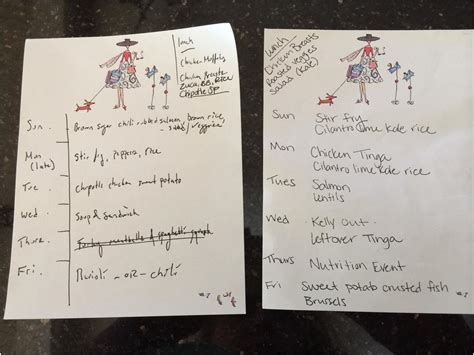 lunch
Chicken Meatballs
Chicken Breasts
Zucc, BB, Rice
Chipotle SP
Sun. Brown sugar chili-rubbed salmon, brown rice,
salad/veggies
Mon (late) Stir fry, peppers, rice
Tue Chipotle chicken sweet potato
Wed Soup & Sandwich
Thurs. Turkey meatballs & spaghetti squash
Fri. Ravioli - or - chili
Lunch
Chicken Breasts
Roasted Veggies
Salad (Kale)
Sun Stir fry
Cilantro lime kale rice
Mon Chicken Tinga
Cilantro lime kale rice
Tues Salmon
Lentils
Wed Kelly Out
leftover Tinga
Thurs Nutrition Event
Fri Sweet potato crusted fish
Brussels